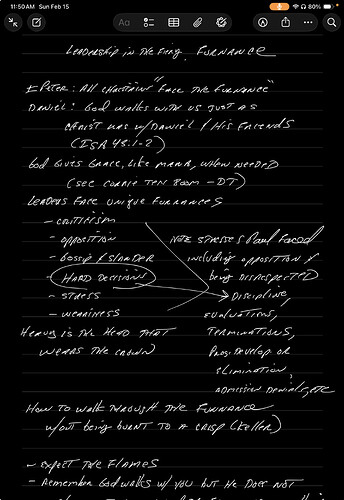 11:50 AM Sun Feb 15
80%
Aa
Leadership in the Firey Furnance
I Peter: All Christians "Face the Furnance"
Daniel: God walks with us just as
Christ was w/ Daniel & His Friends
(ISA 43:1-2)
God gives Grace, like mana, when needed
(see Corrie Ten Boom - DT)
Leaders Face Unique Furnances
- Criticism
- opposition
- Gossip & Slander
- Hard Decisions
- Stress
- Weariness
Note stresses Paul Faced
including opposition &
being disrespected
Discipline,
evaluations,
Terminations,
Prog. Develop or
Elimination,
admission denials, etc
Heavy is the Head that
wears the crown)
How to walk through the Furnance
w/out being burnt to a crisp (Keller)
- expect the Flames
- Remember God walks w/ you but He does not